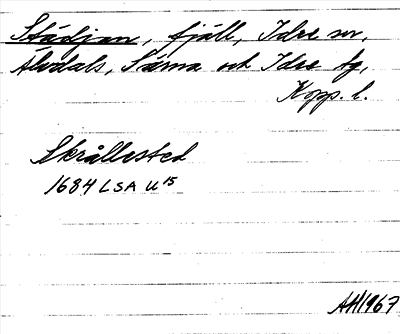 Städjan, fjäll, Idre sn,
Älvdals, Särna och Idre tg,
Kopp. l.
Skrållested
1684 LSA U 15
AH 1967